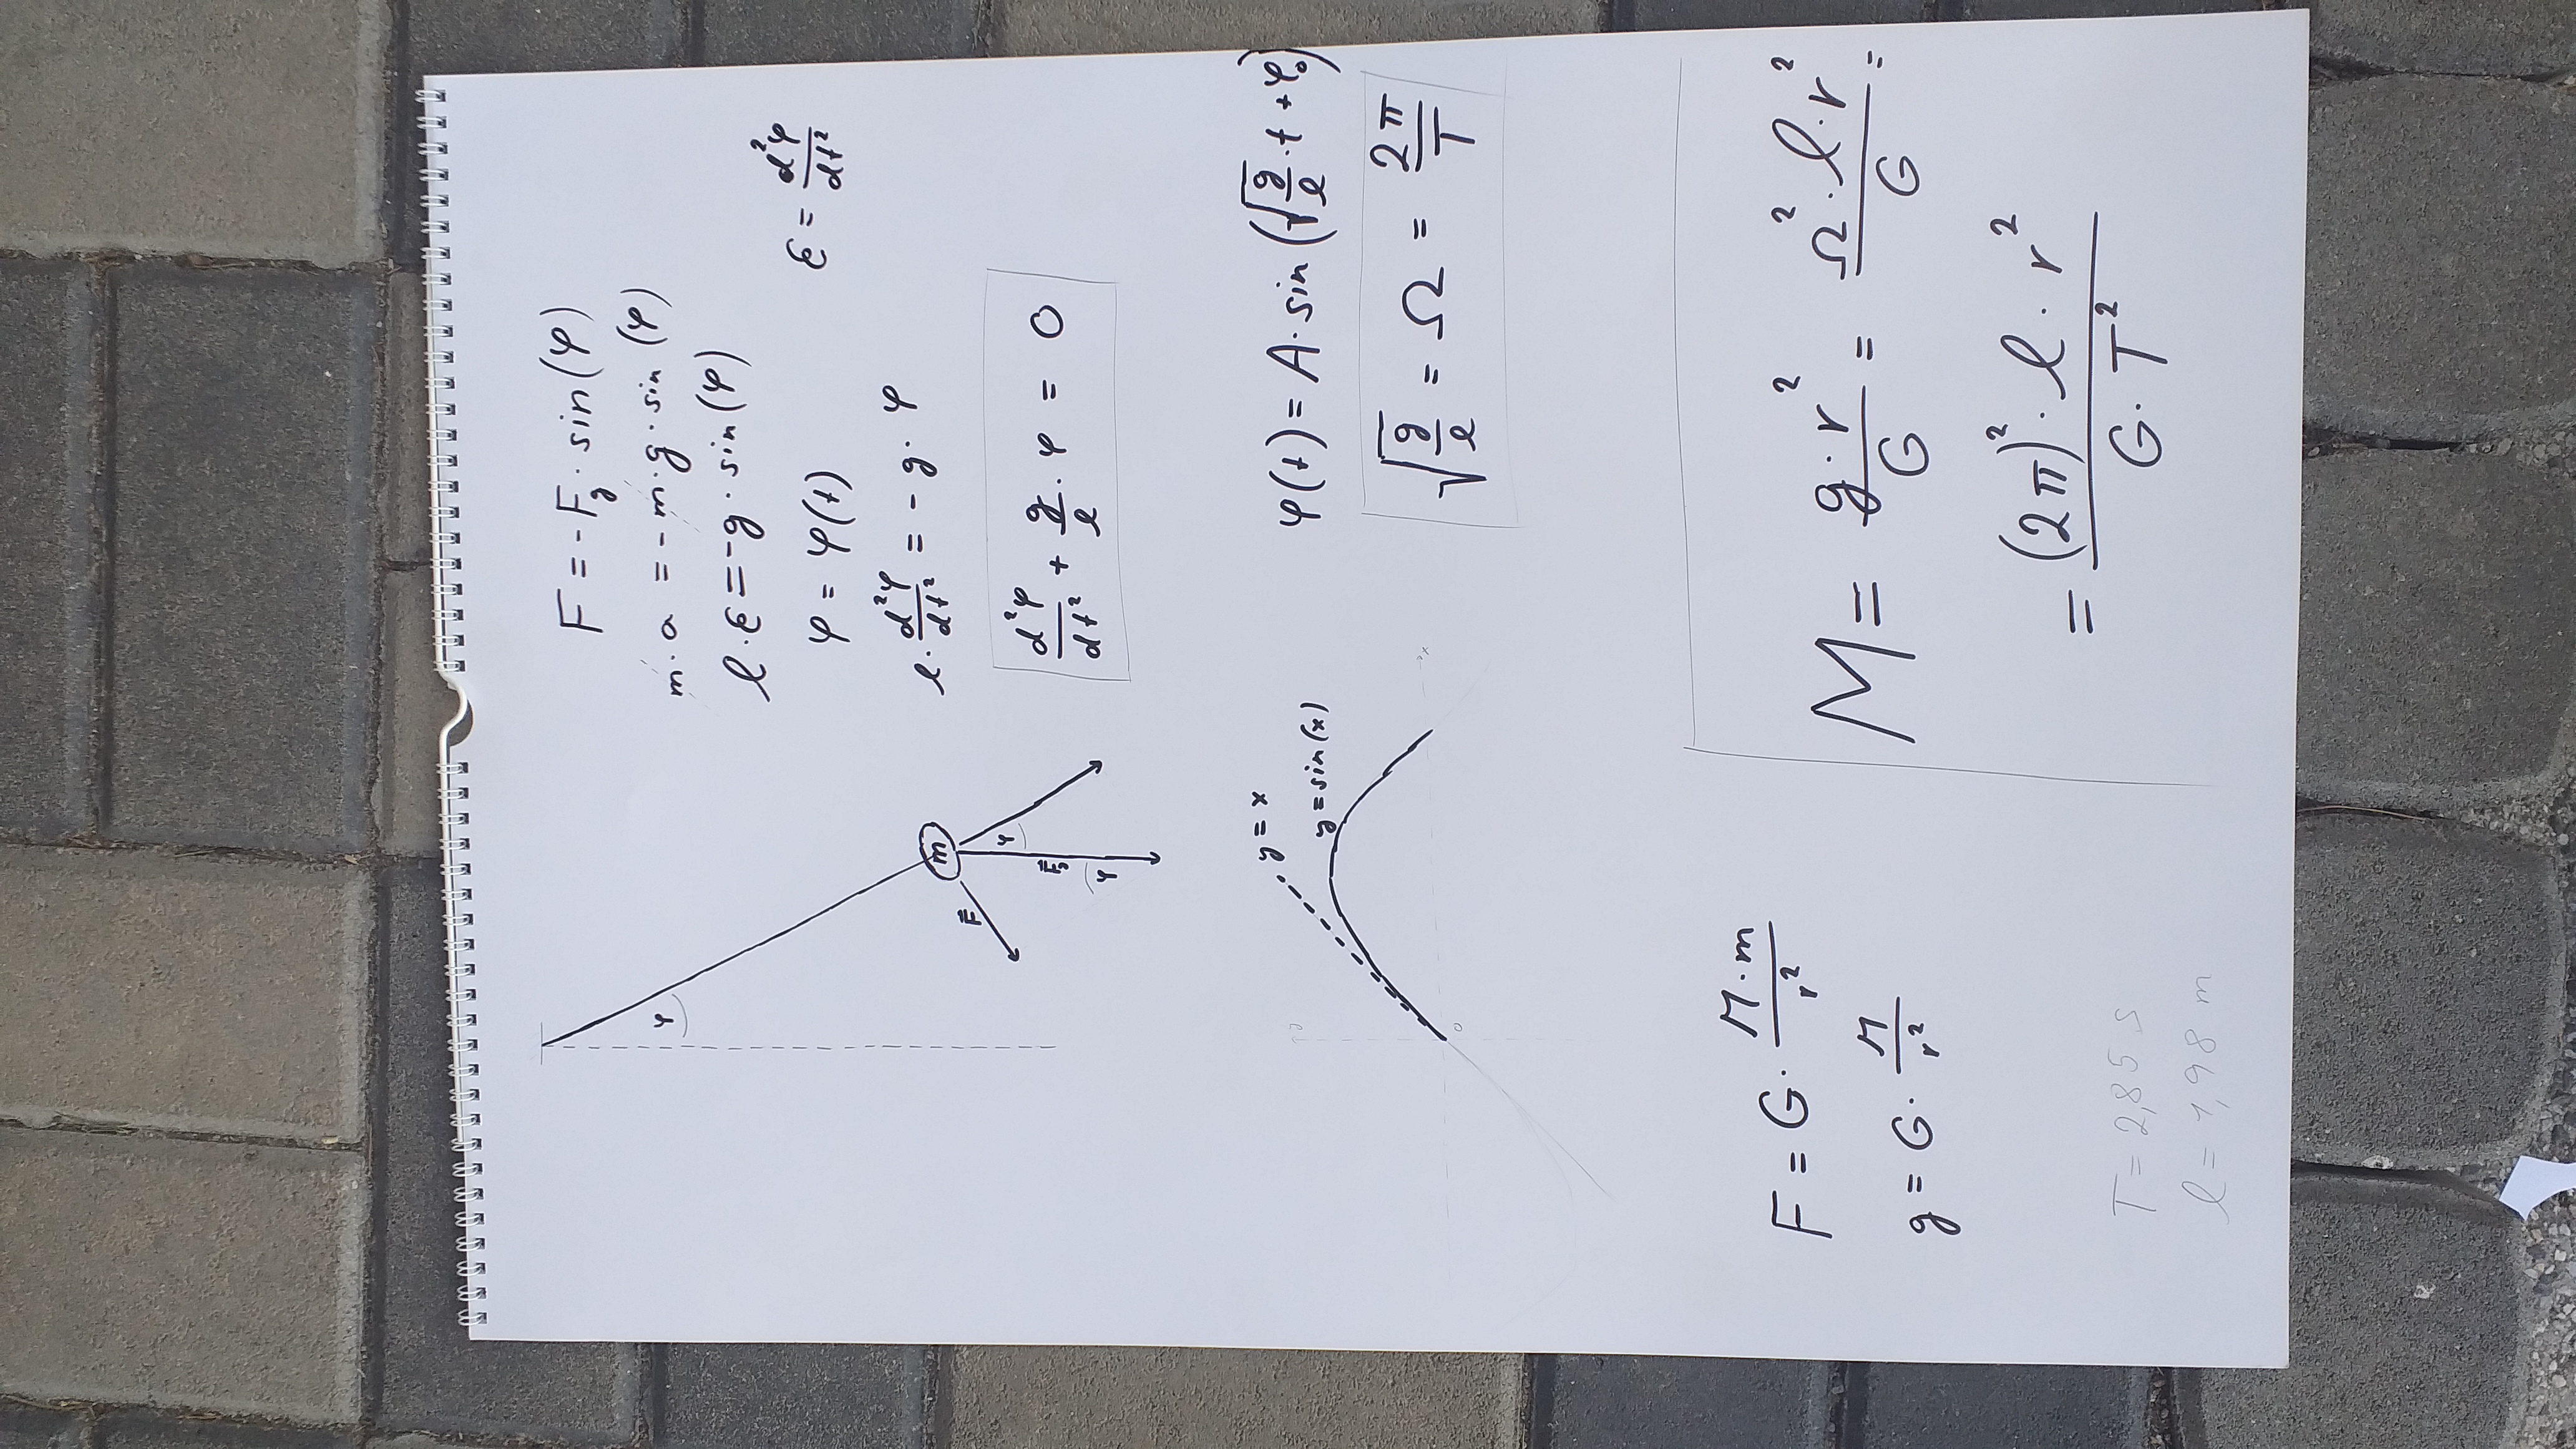 F = -F_g · sin(φ)
m · a = -m · g · sin(φ)
l · ε = -g · sin(φ)
φ = φ(t)
ε = d²φ/dt²
l · d²φ/dt² = -g · φ
d²φ/dt² + g/l · φ = 0
φ
m
φ
F̄
F̄_g
φ
φ(t) = A · sin(√(g/l) · t + φ₀)
√(g/l) = Ω = 2π/T
y = x
y = sin(x)
y
x
0
F = G · M·m/r²
g = G · M/r²
M = g·r²/G = Ω²·l·r²/G =
= (2π)²·l·r²/G·T²
T = 2,85 s
l = 1,98 m